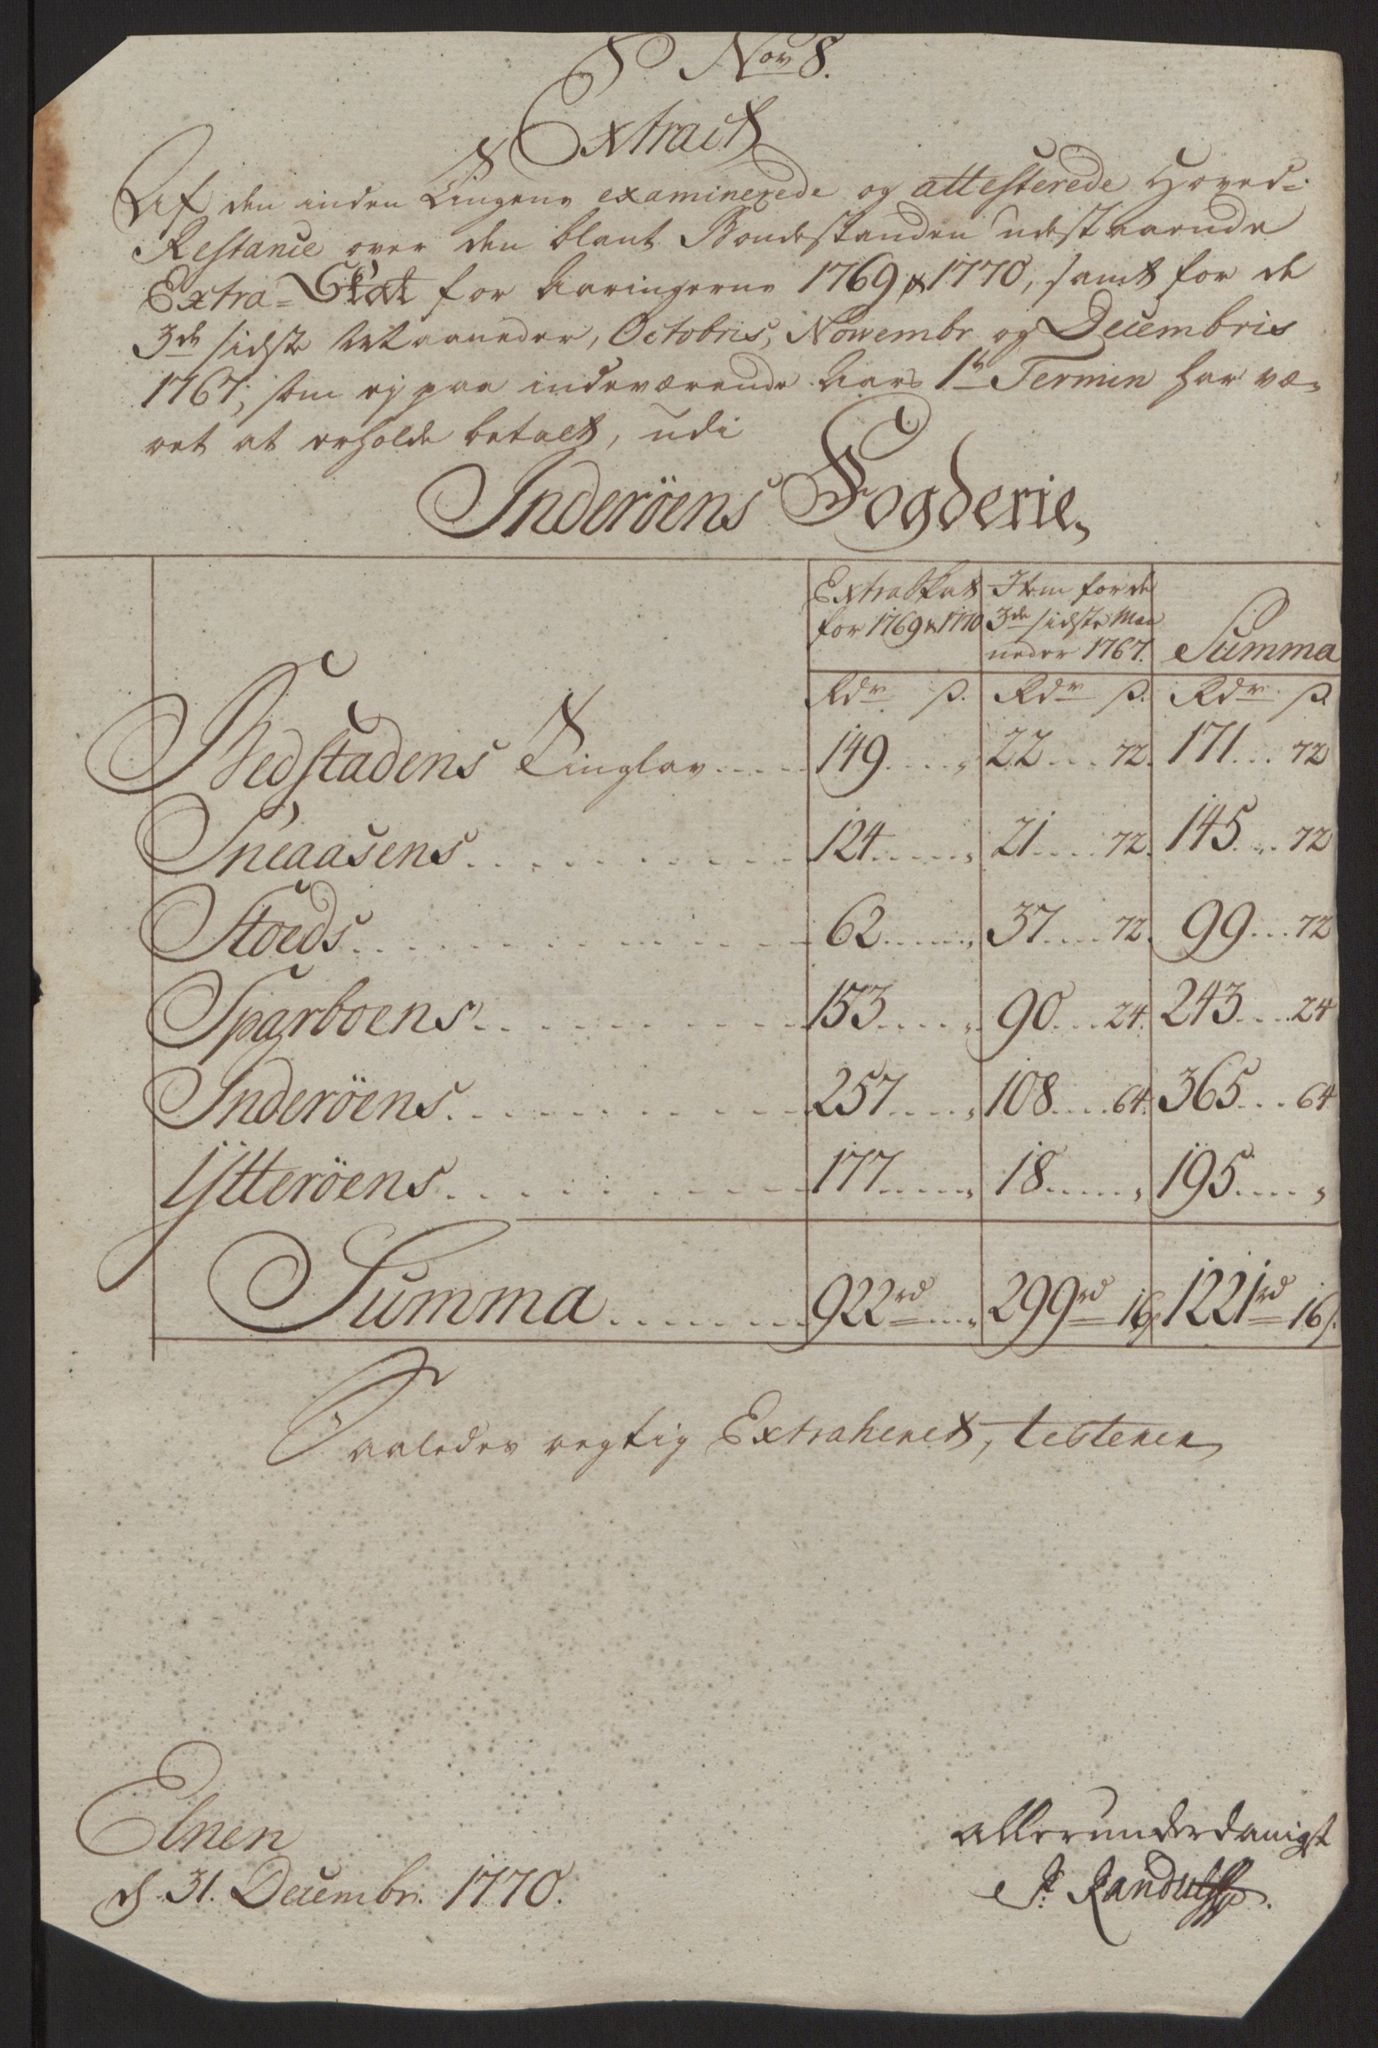 Nov 8.
Extract
Af den inden Tingene examinerede og attesterede Hoved-
Restance over den blant Bondestanden udestaaende
Extra-Skat for Aaringerne 1769 & 1770, samt for de
3de sidste Maaneder, Octobris, Novembr og Decembris
1767, som ej paa indeværende Aars 1te Termin har væ-
ret at erholde betalt, udi
Inderöens Fogderie,
Extra Skat for 1769 & 1770 Item for de 3de sidste Maaneder 1767. Summa
Rdr ß. Rdr ß. Rdr ß.
Bedstadens Tinglav 149 „ 22 72. 171 72
Sneaasens 124 „ 21 72. 145 72
Stoeds 62 „ 37 72. 99 72
Sparboens 153 „ 90 24. 243 24
Inderöens 257 „ 108 64. 365 64
Ytteröens 177 „ 18 „ 195 „
Summa 922rd „ 299rd 16ß 1221rd 16ß.
Saaledes rigtig Extraheret, testerer
Elnen
d. 31. Decembr. 1770.
allerunderdanigst
Randulff